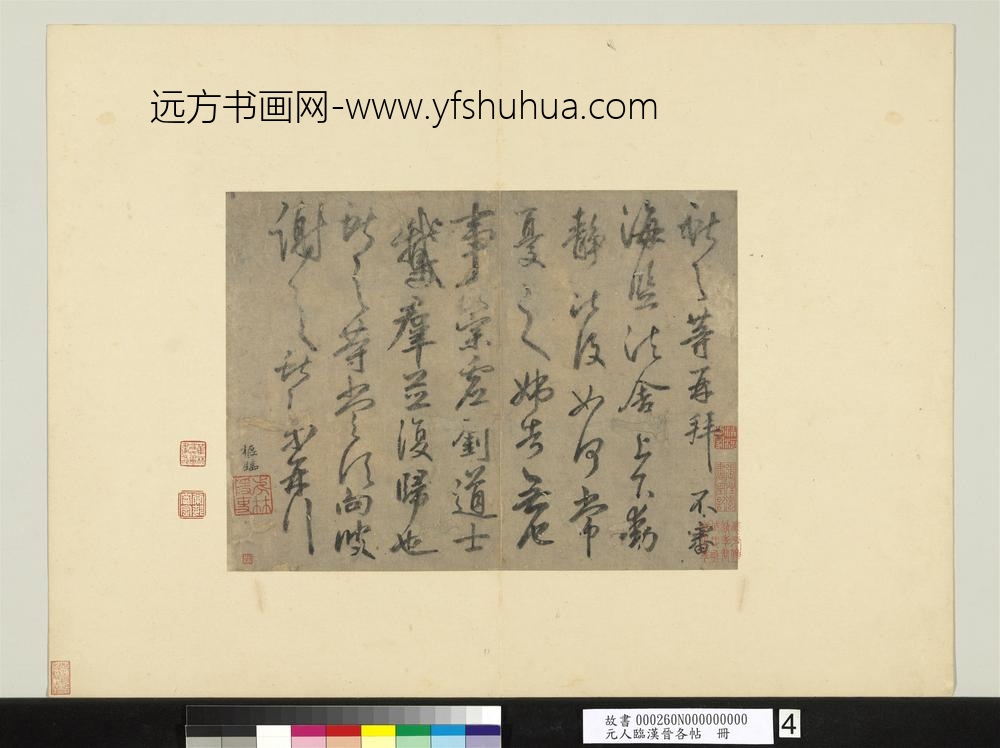 远方书画网-www.yfshuhua.com
献之等再拜 不審
海鹽諸舍上下動
靜比復如何常
憂之 姊告無他
事崇虛劉道士
鵝群並復歸也
獻之等當須向彼
謝之獻之等再拜
樞臨
故書 000260N000000000
元人臨漢晉各帖 冊
4